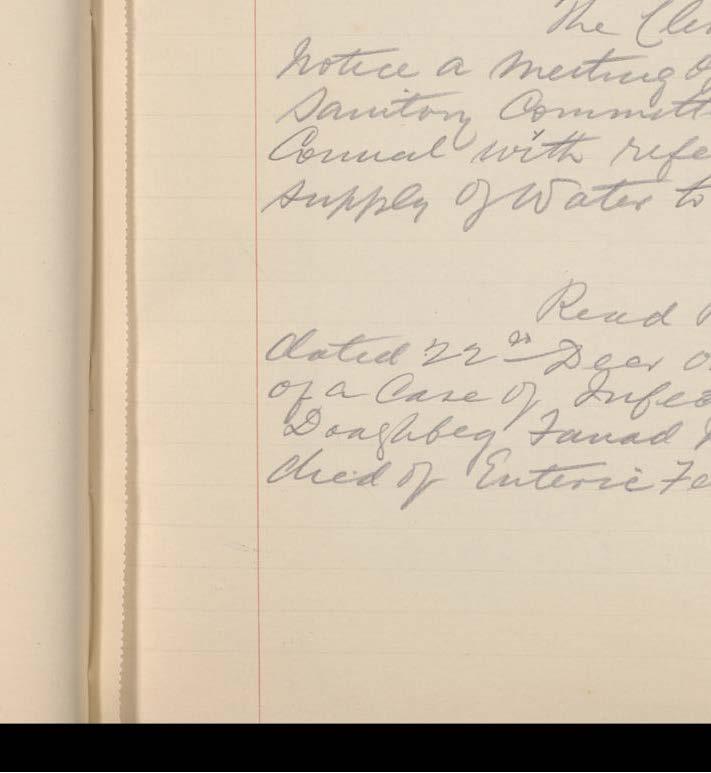 The Cler
Notice a Meeting of
Sanitory Committ
Counal with refe
supply of Water to
Read
dated 22nd Decr
of a Case of Infec
Doaghbeg Fanad
died of Enteric Fe